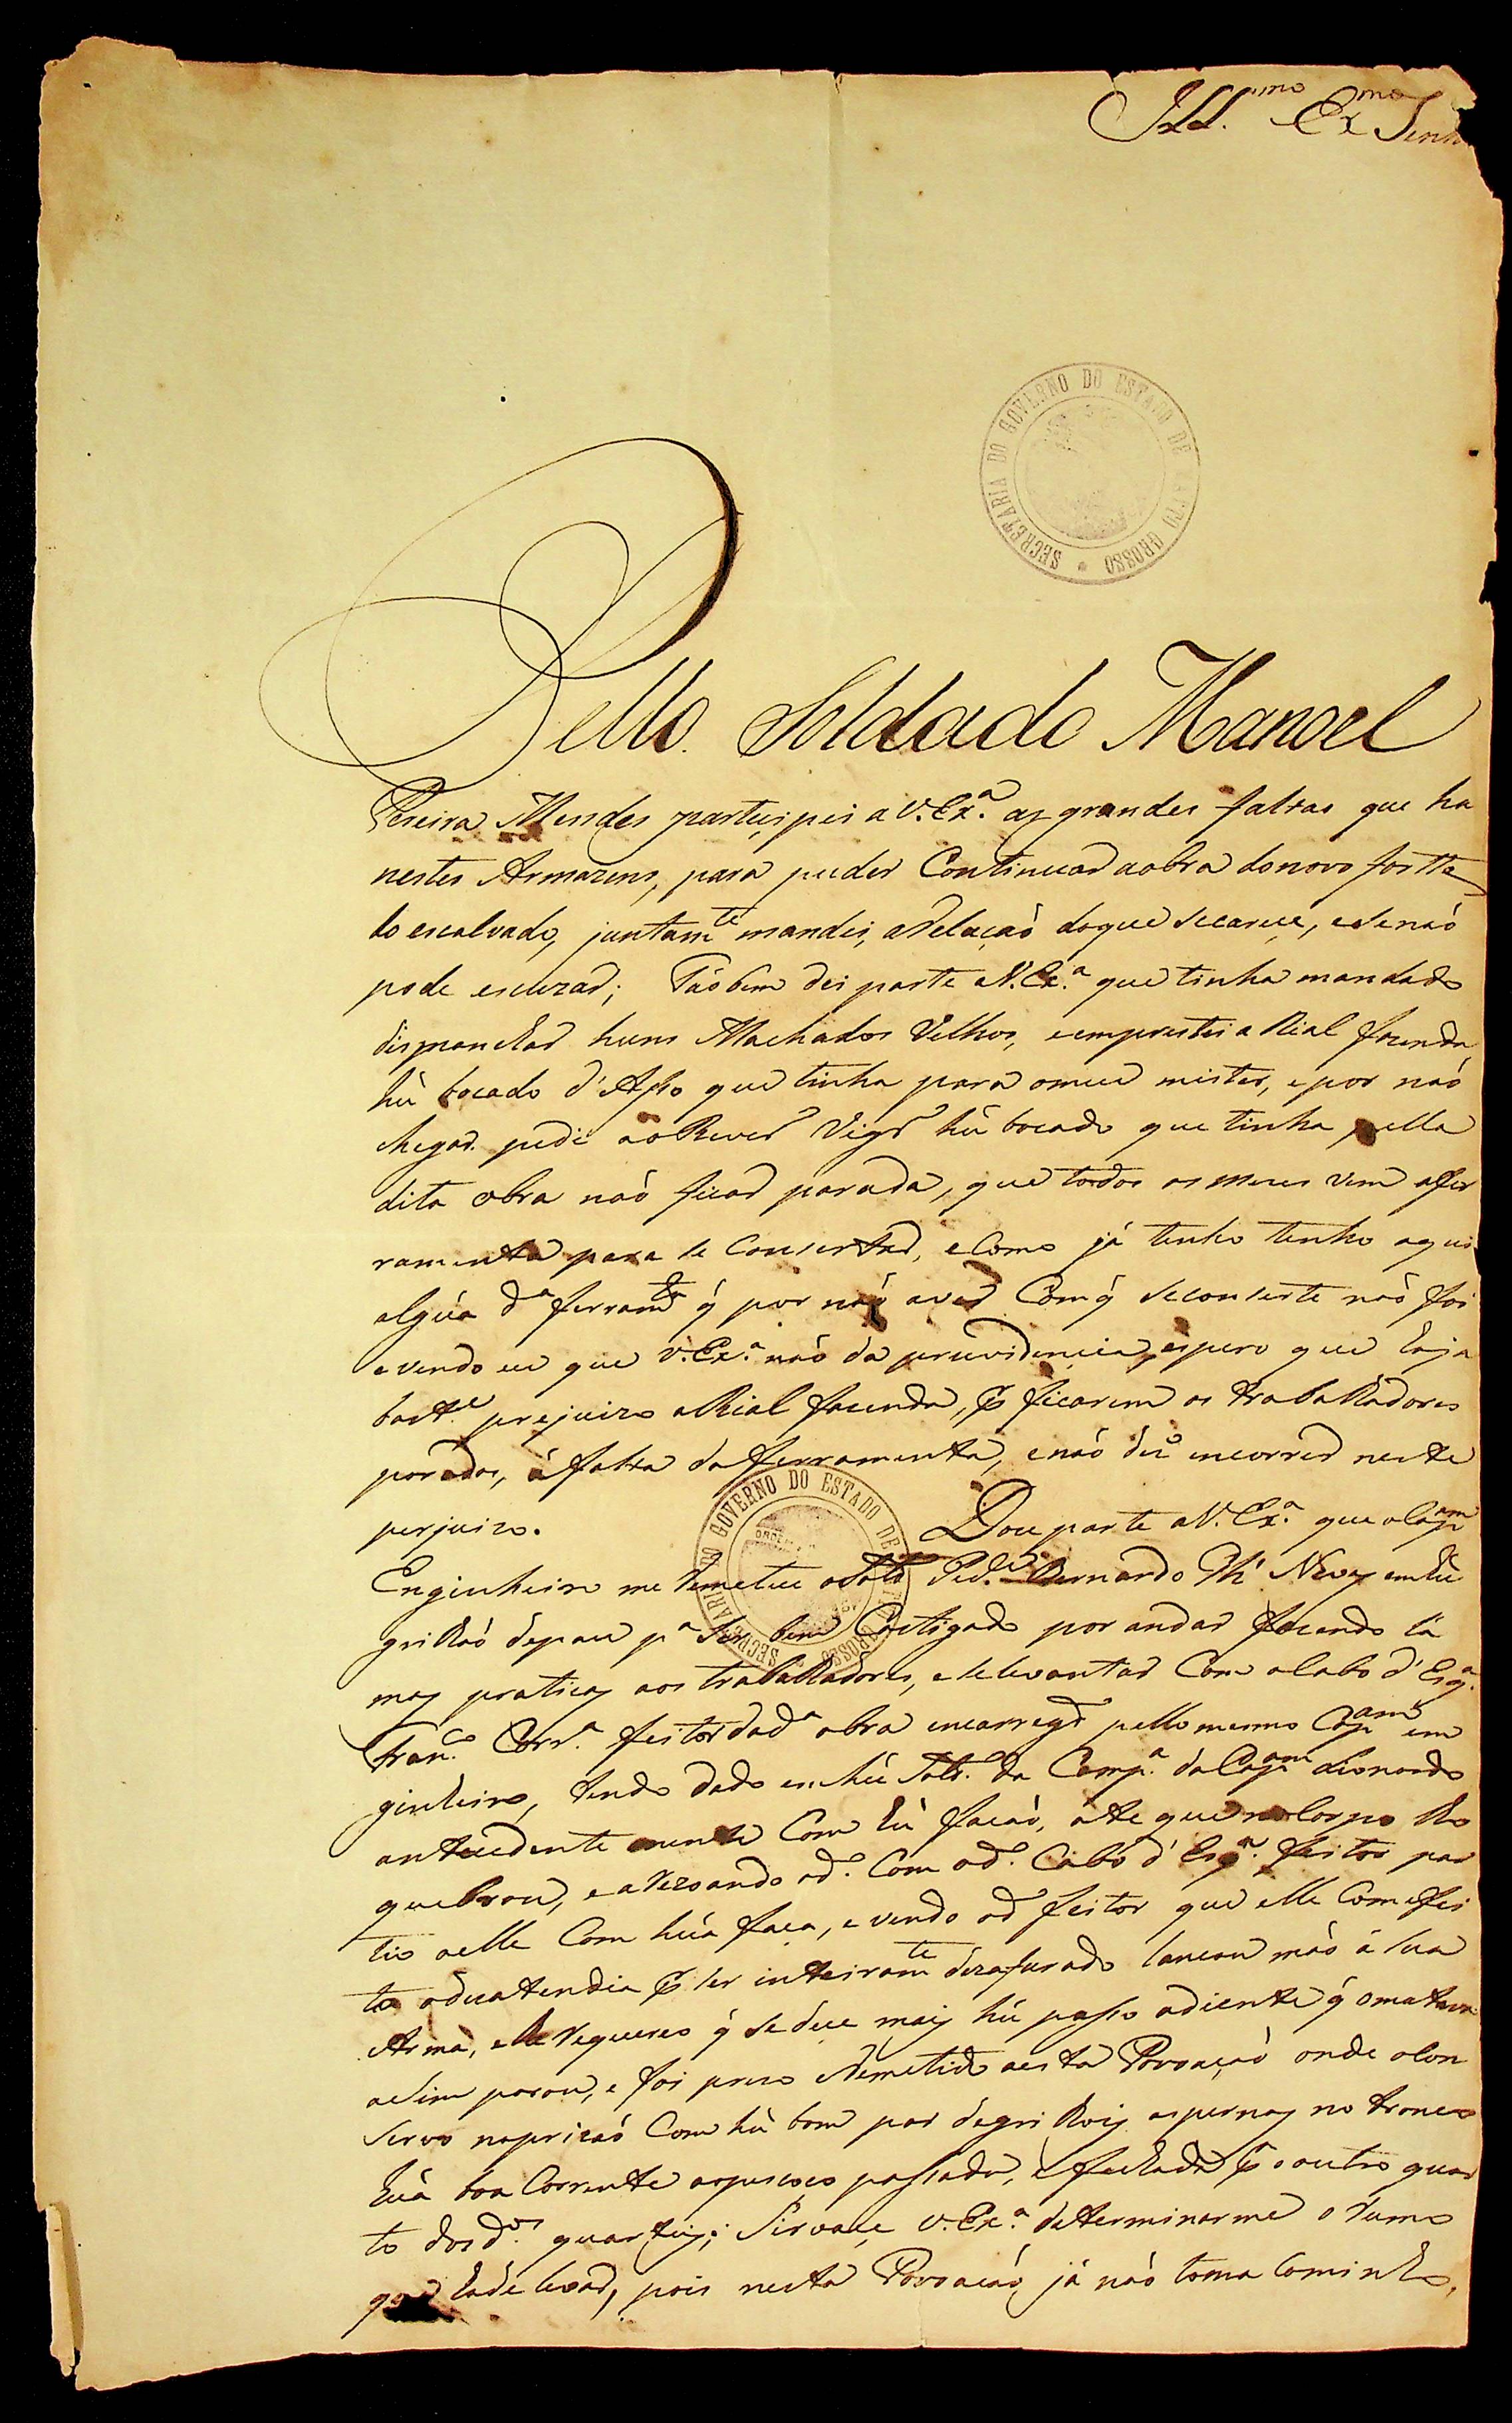 Ill.mo Ex.mo Senh
SECRETARIA DO GOVERNO DO ESTADO DE MATTO GROSSO
Pello Soldado Manoel
Pereira Mendes partecipei a V. Ex.a as grandes faltas que ha
nestes Armazens, para puder Continuar a obra do novo forte
do escalvado, juntam.te mandei, a Relaçaõ do que se carece, e se naõ
pode escuzar; Taõ bem dei parte a V. Ex.a que tinha mandado
desmanchar huns Machados Velhos, e emprestei a Rial fazenda
hú bocado d'Asso que tinha para o meu mister, e por naõ
chegar pedi ao Rever.do Vigr.o hú bocado que tinha, pella
dita obra naõ ficar parada, que todos os mezes vem a fer
ramenta para se Consertar, e Como já tenho tenho aqui
algúa d.a ferram.ta q̃ por naõ aver Com q̃ se conserte naõ foi
e vendo eu que V. Ex.a naõ da providencia, espero que haja
bast.e prejuizo a Rial fazenda, p.r ficarem os trabalhadores
parados, á falta da ferramenta, e naõ dezo encorrer neste
perjuizo. Dou parte a V. Ex.a que o Cap.am
SECRETARIA DO GOVERNO DO ESTADO DE MATTO GROSSO
Enginheiro me Remeteu o Sold.o Ped.e Bernardo Neves em hú
grilhaõ depau p.a ser bem Castigado por andar fazendo lá
mas praticas aos trabalhadores, e se levantar Com o Cabo d'Esq.a
Fran.co Corr.a feitor da d.a obra encarreg.do pello mesmo Cap.am en
ginheiro, tendo dado em hú Sold.o da Comp.a do Cap.am Leonardo
antecedente mente Com hú facaõ, áte que no Corpo lho
quebrou, e a Rezoando o d.o Com o d.o Cabo d'Esq.a feitor par
tio a elle Com húa faca, e vendo o d.o feitor que elle Com efei
to o ducatendia p.r ser inteiram.te dezaforado lançou maõ á sua
Arma, e lhe Requereo q̃ se déce mais hú passo adiente q̃ o matava
a Sim parou, e foi prezo e Remetido a esta Povoaçaõ onde o Con
servo na prizaõ Com hú bom par de grilhois as pernas no tronco
húa boa Corrente ao pescoço passada, e fechada p.a o outro quar
to dos d.os quarteis; Sirvace V. Ex.a determinarme o Rumo
que hade levar, pois nesta Povoacaõ, já naõ toma Caminho,